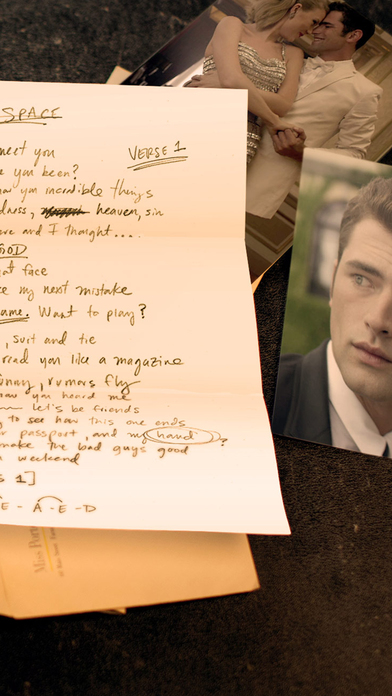 SPACE
meet you
VERSE 1
e you been?
ow you incredible things
dness, heaven, sin
ere and I thought....
at face
ke my next mistake
ame. Want to play?
, suit and tie
read you like a magazine
unny, rumors fly
now you heard me
let's be friends
g to see how this one ends
r passport, and my hand?
make the bad guys good
a weekend
s 1]
E - A - E - D